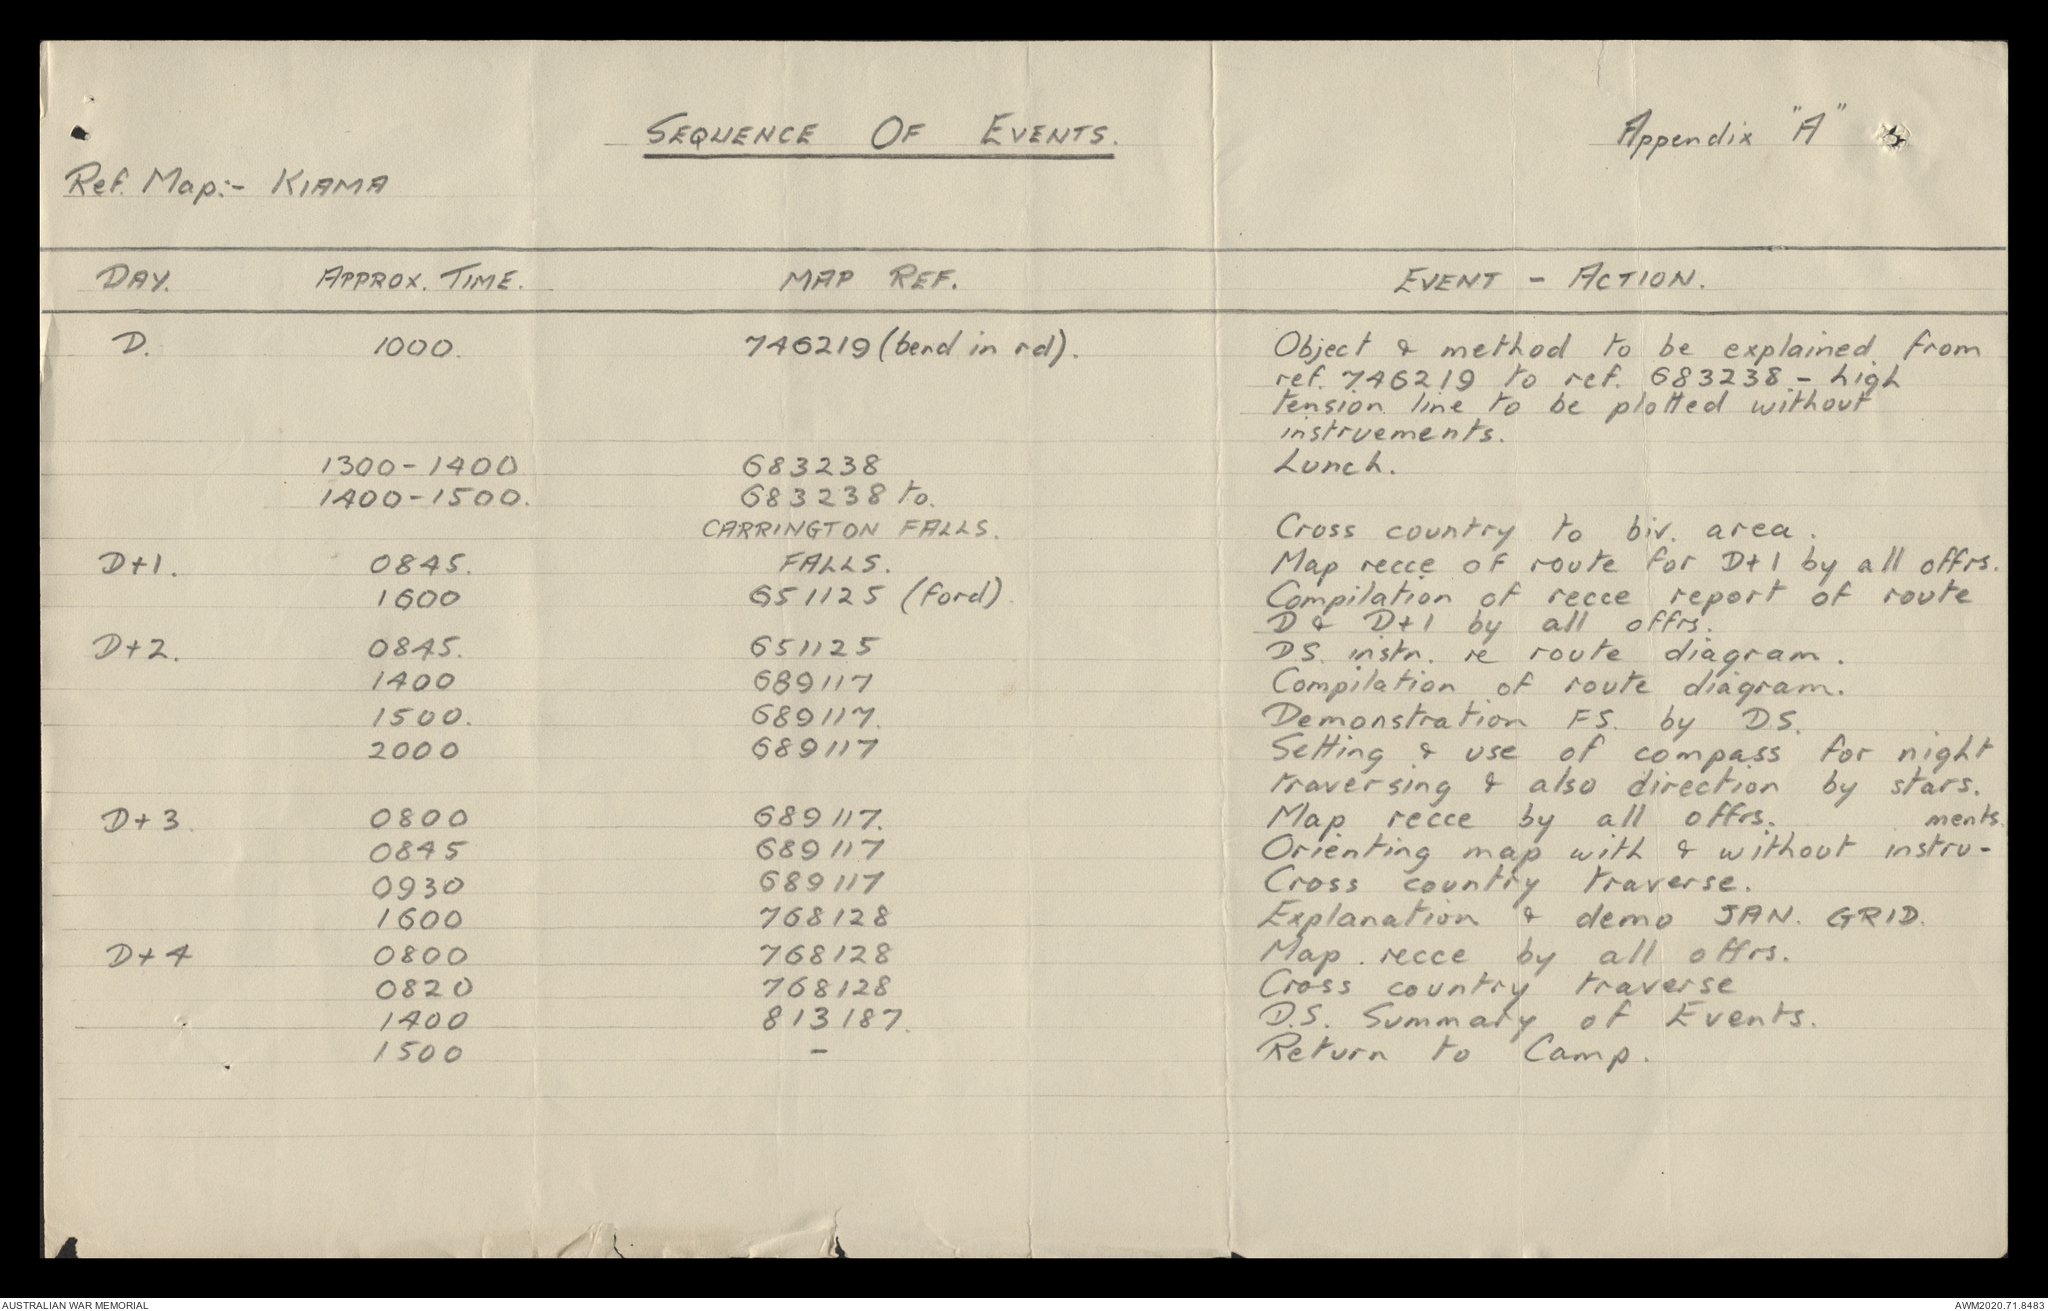 SEQUENCE OF EVENTS. Appendix "A"
Ref. Map:- KIAMA
DAY. APPROX. TIME. MAP REF. EVENT - ACTION.
D. 1000. 746219 (bend in rd). Object & method to be explained. From
ref. 746219 to ref. 683238 - high
tension line to be plotted without
instruements.
1300-1400 683238 Lunch.
1400-1500. 683238 to.
CARRINGTON FALLS. Cross country to biv. area.
D+1. 0845. FALLS. Map recce of route for D+1 by all offrs.
1600 651125 (ford) Compilation of recce report of route
D & D+1 by all offrs.
D+2. 0845. 651125 DS. instn. re route diagram.
1400 689117 Compilation of route diagram.
1500. 689117. Demonstration FS. by D.S.
2000 689117 Setting & use of compass for night
traversing & also direction by stars.
D+3. 0800 689117. Map recce by all offrs. ments.
0845 689117 Orienting map with & without instru-
0930 689117 Cross country traverse.
1600 768128 Explanation & demo JAN. GRID.
D+4 0800 768128 Map. recce by all offrs.
0820 768128 Cross country traverse
1400 813187. D.S. Summary of Events.
1500 - Return to Camp.
AUSTRALIAN WAR MEMORIAL AWM2020.71.8483